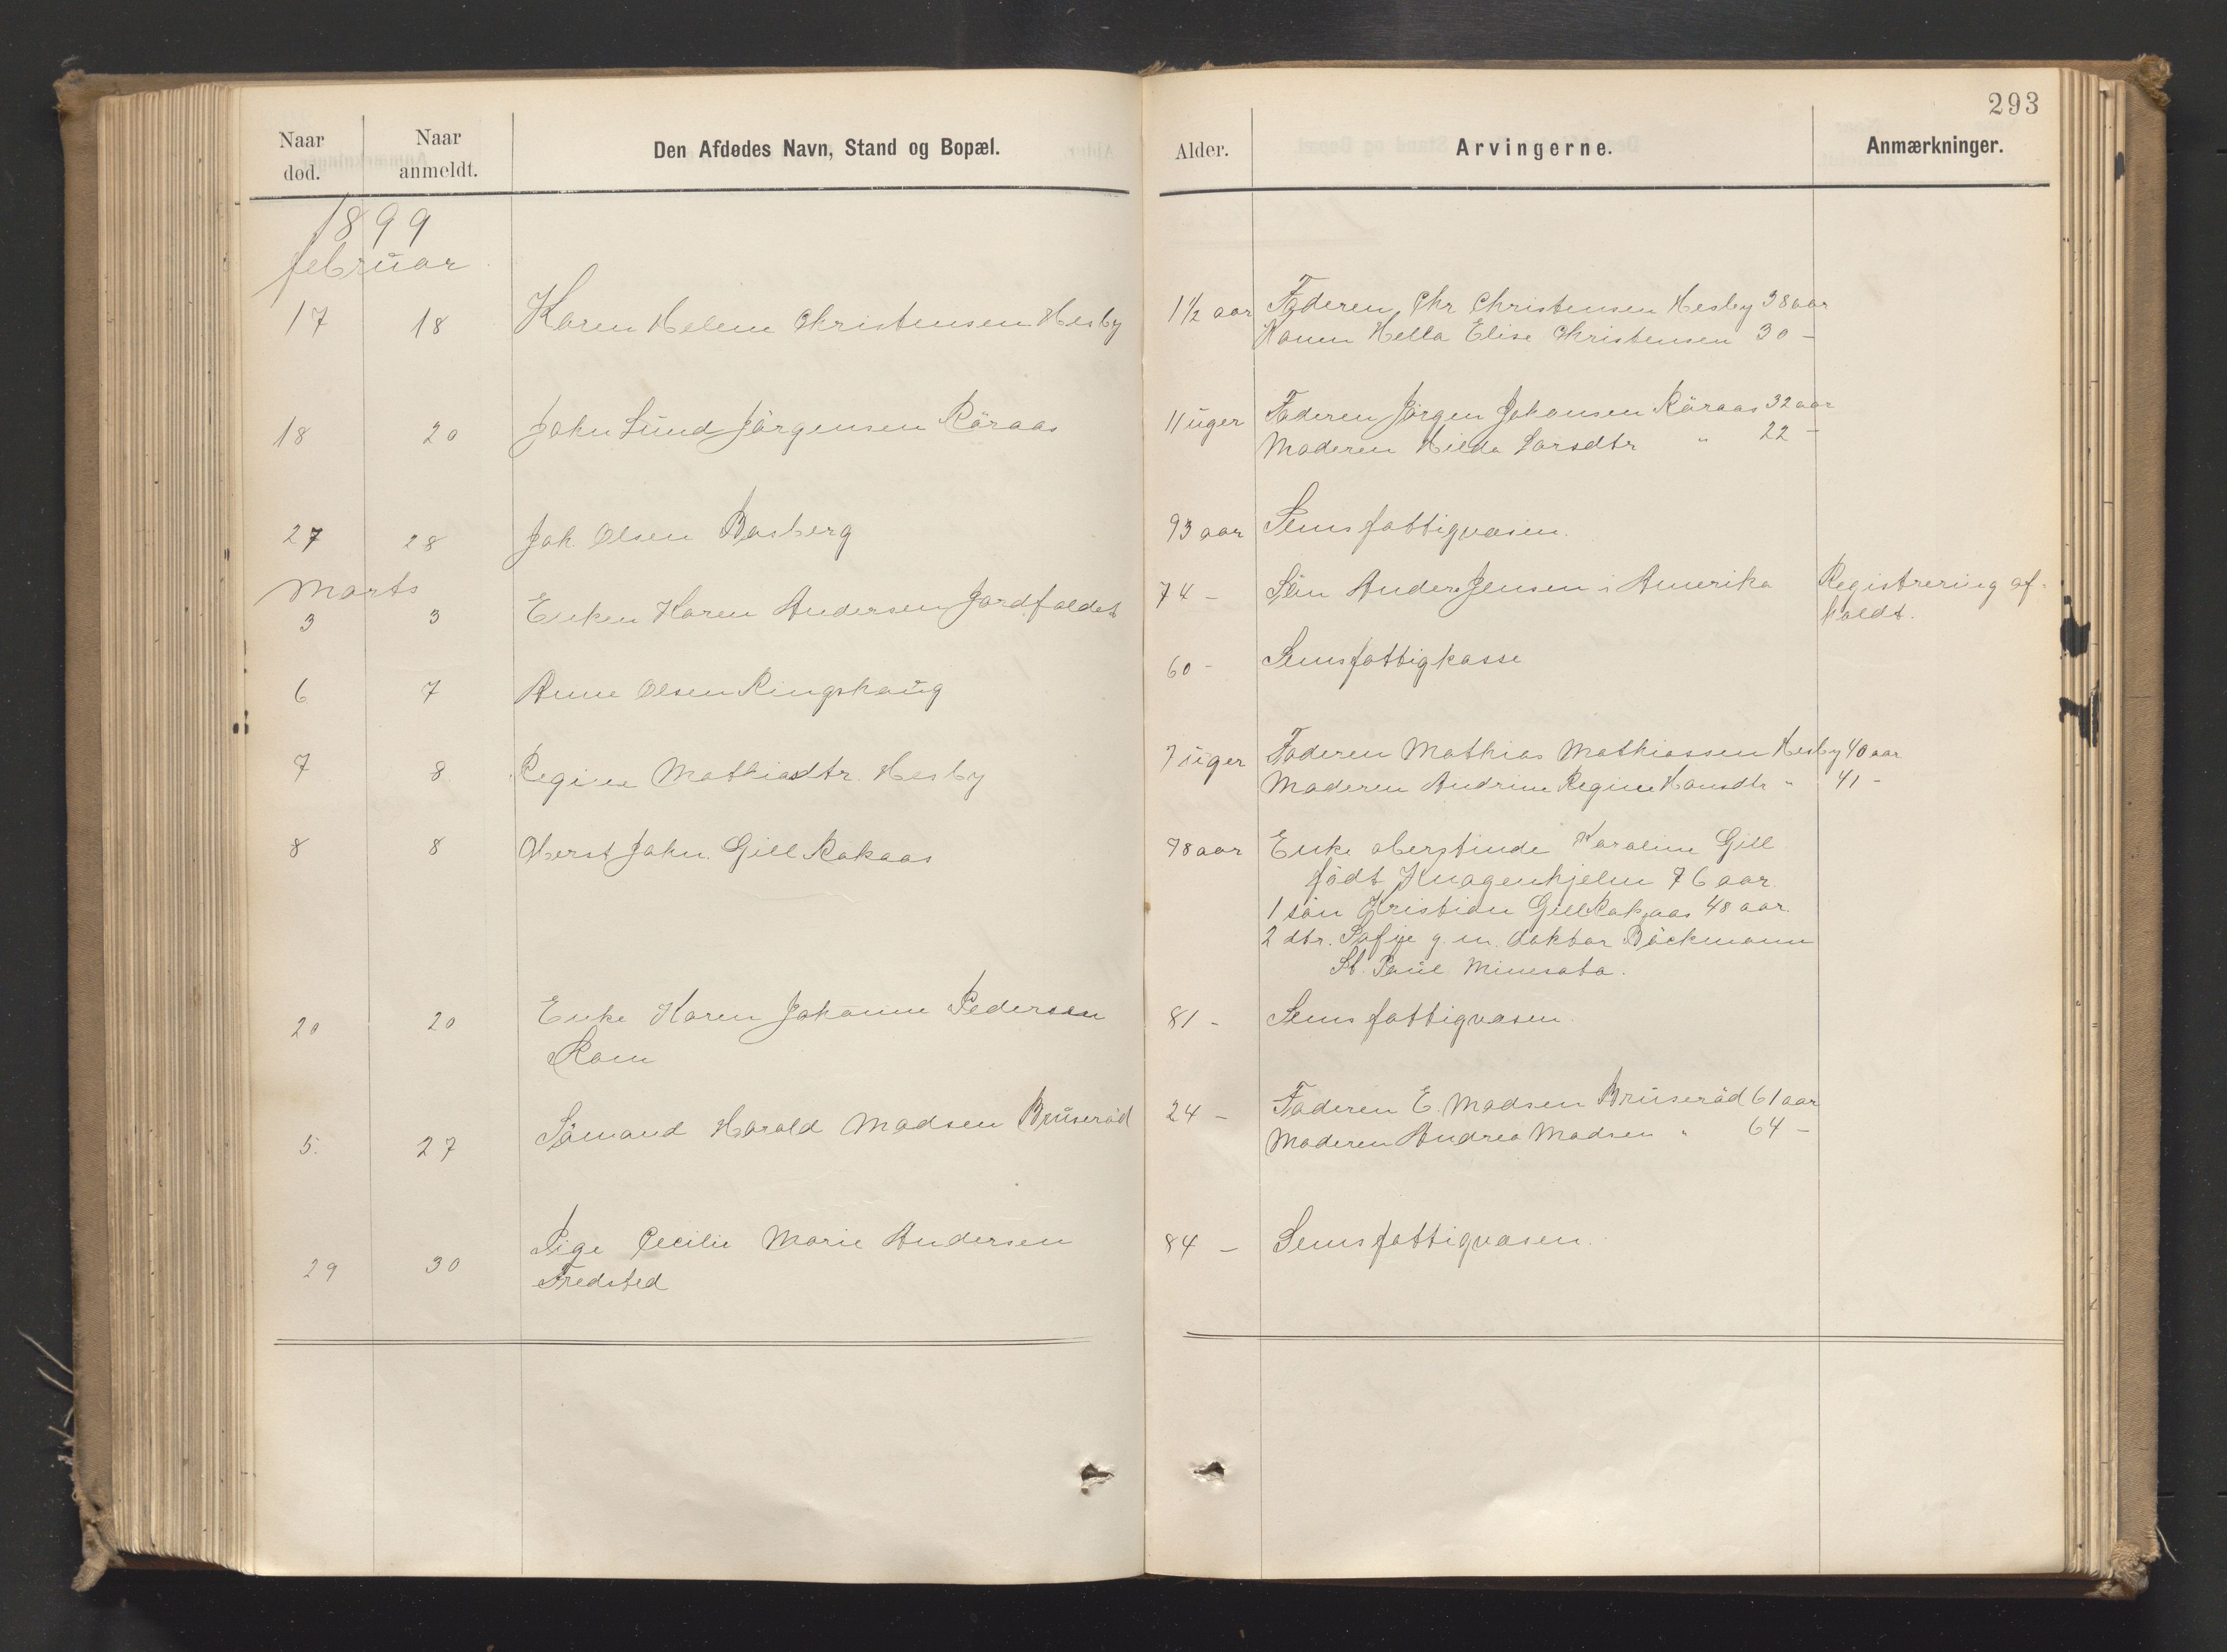 293
Naar død.
Naar anmeldt.
Den Afdødes Navn, Stand og Bopæl.
Alder.
Arvingerne.
Anmærkninger.
1899
februar
17 18 Karen Helene Christensen Hesby 1 1/2 aar Faderen Chr Christensen Hesby 38 aar
Konen Hella Elise Christensen 30 –
18 20 John Lund Jörgensen Röraas 11 uger Faderen Jörgen Johansen Röraas 32 aar
Moderen Hilda Larsdtr " 22 –
27 28 Joh. Olsen Basberg 93 aar Sems fattigvæsen.
Marts
3 3 Enken Karen Andersen Jordfaldet 74 – Sön Anders Jensen i Amerika Registrering af=
holdt.
6 7 Anne Olsen Ringshaug 60 – Sems fattigkasse
7 8 Regine Mathiasdtr. Hesby 7 uger Faderen Mathias Mathiassen Hesby 40 aar
Moderen Andrine Regine Hansdtr " 41 –
8 8 Oberst John Gill Rakaas 78 aar Enke oberstinde Karoline Gill
födt Knagenhjelm 76 aar.
1 sön Kristian Gill Rakaas 48 aar.
2 dtr. Sofije g. m. doktor Böckmann
St. Paul Minesota.
20 20 Enke Karen Johanne Pedersen 81 – Sems fattigvæsen.
Ram
5. 27 Sömand Harald Madsen Bruseröd 24 – Faderen E. Madsen Bruseröd 61 aar
Moderen Andrea Madsen " 64 –
29 30 Pige Cecilie Marie Andersen 84 – Sems fattigvæsen.
Fredsted